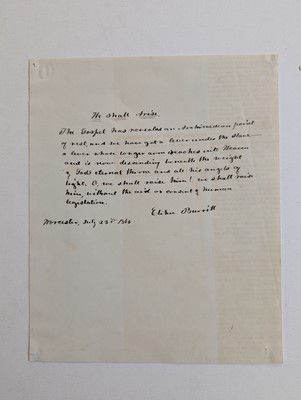 He shall Arise.
The Gospel has revealed an Archimedean point
of rest, and we have got a lever under the slave —
a lever whose longer arm reaches into Heaven
and is now descending beneath the weight
of God's eternal throne and all his angels of
light. O, we shall raise him! we shall raise
him, without the aid or consent of human
legislation.
Elihu Burritt
Worcester, July 22d 184